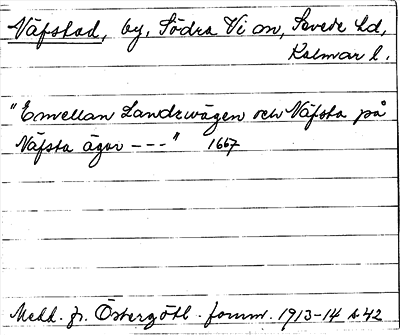 Näfstad, by, Södra Vi sn, Sevede hd,
Kalmar l.
"Emellan Landzwägen och Näfsta på
Näfsta ägor ---" 1667
Medd. fr. Östergötl. fornm. 1913-14 s. 42